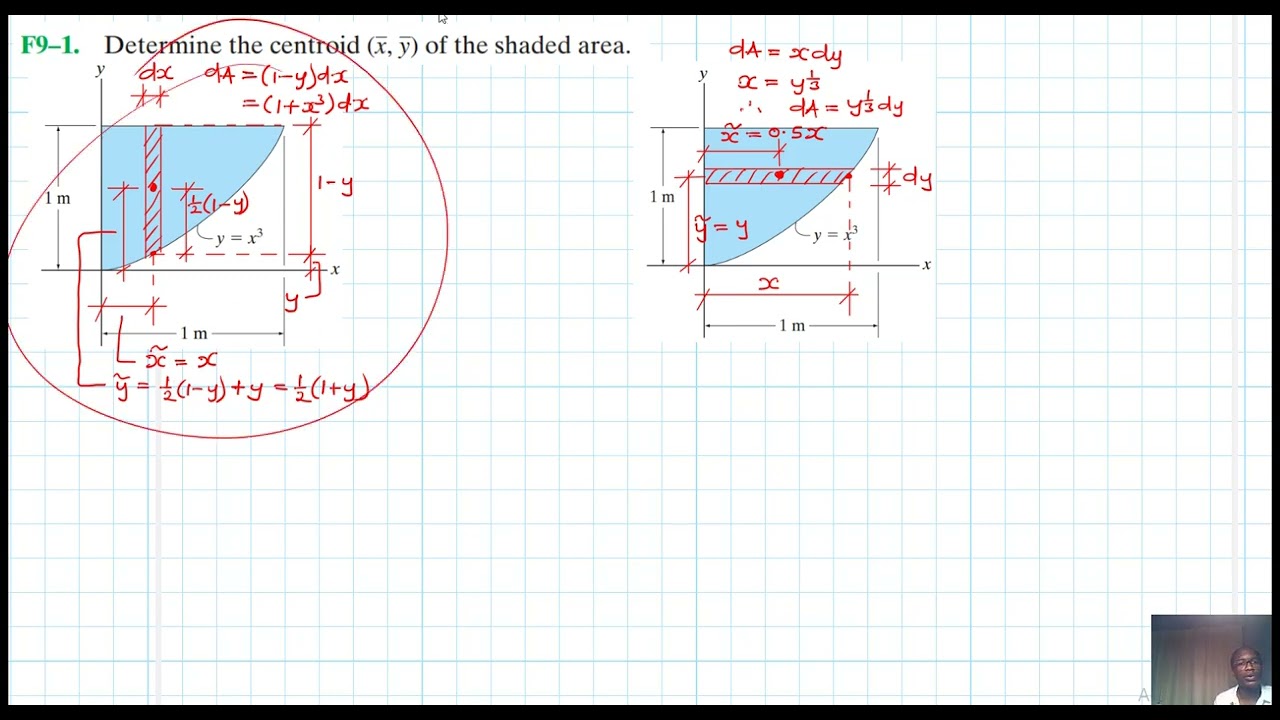 F9–1. Determine the centroid (x̄, ȳ) of the shaded area.
y
dx
dA = (1-y)dx
= (1+x³)dx
1 m
1-y
½(1-y)
y = x³
x
y
1 m
x̃ = x
ỹ = ½(1-y)+y = ½(1+y)
dA = x dy
x = y^⅓
∴ dA = y^⅓ dy
y
x̃ = 0.5x
dy
1 m
ỹ = y
y = x³
x
x
1 m
A